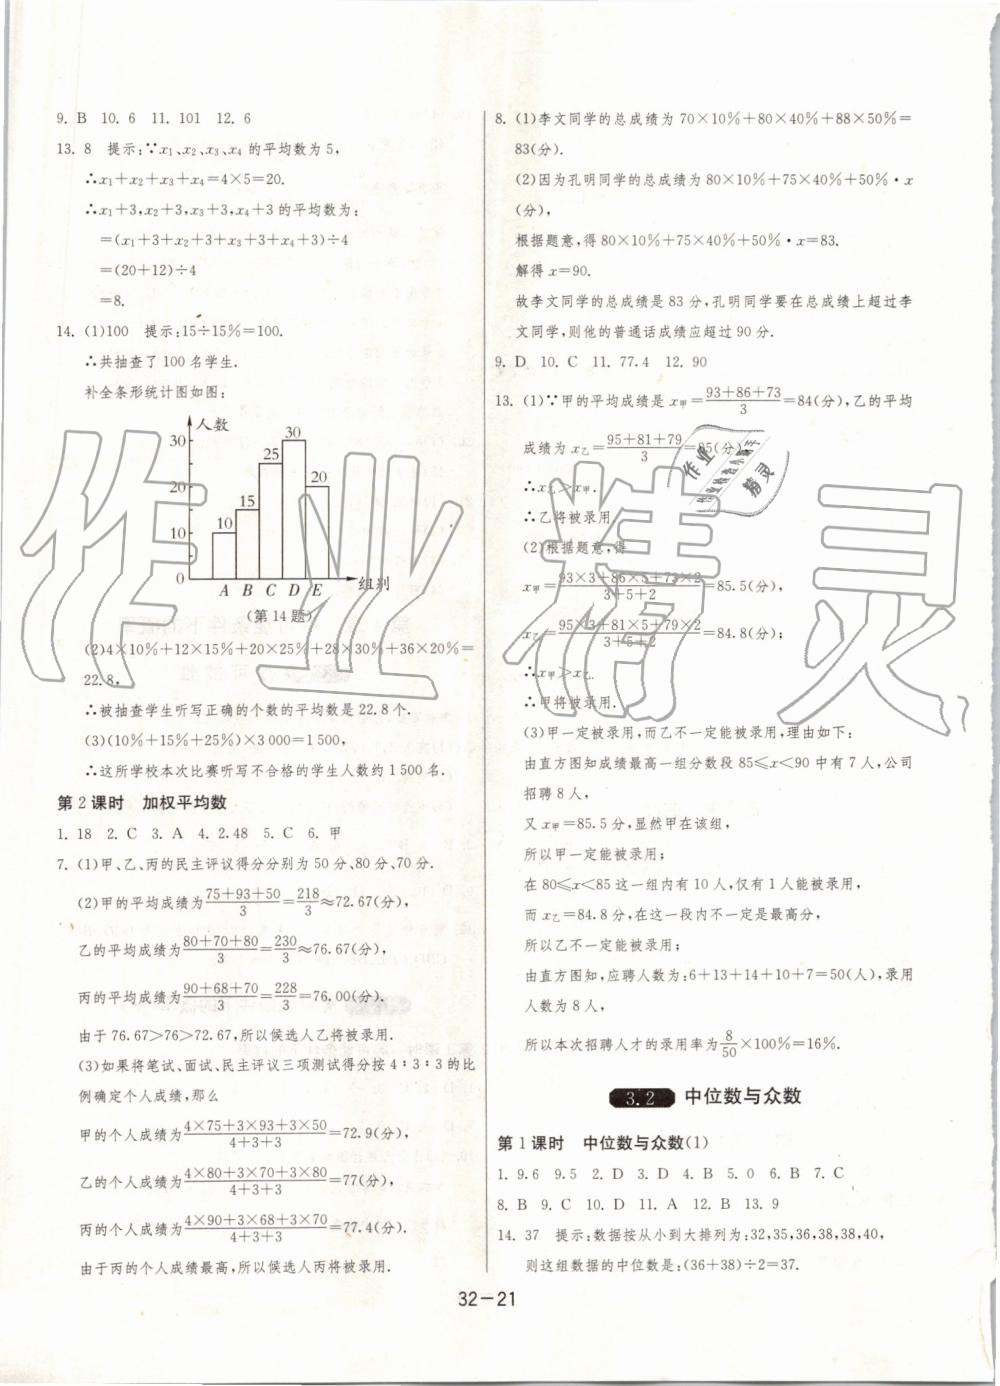 9. B 10. 6 11. 101 12. 6
13. 8 提示:∵x₁、x₂、x₃、x₄ 的平均数为 5,
∴x₁+x₂+x₃+x₄=4×5=20.
∴x₁+3,x₂+3,x₃+3,x₄+3 的平均数为:
=(x₁+3+x₂+3+x₃+3+x₄+3)÷4
=(20+12)÷4
=8.
14. (1)100 提示:15÷15%=100.
∴共抽查了 100 名学生.
补全条形统计图如图:
人数
30
20
10
0
10
15
25
30
20
A B C D E
组别
(第 14 题)
(2)4×10%+12×15%+20×25%+28×30%+36×20%=
22.8,
∴被抽查学生听写正确的个数的平均数是 22.8 个.
(3)(10%+15%+25%)×3 000=1 500,
∴这所学校本次比赛听写不合格的学生人数约 1 500 名.
第 2 课时 加权平均数
1. 18 2. C 3. A 4. 2.48 5. C 6. 甲
7. (1)甲、乙、丙的民主评议得分分别为 50 分、80 分、70 分.
(2)甲的平均成绩为 75+93+50/3=218/3≈72.67(分),
乙的平均成绩为 80+70+80/3=230/3≈76.67(分),
丙的平均成绩为 90+68+70/3=228/3=76.00(分).
由于 76.67>76>72.67,所以候选人乙将被录用.
(3)如果将笔试、面试、民主评议三项测试得分按 4∶3∶3 的比
例确定个人成绩,那么
甲的个人成绩为 4×75+3×93+3×50/4+3+3=72.9(分),
乙的个人成绩为 4×80+3×70+3×80/4+3+3=77(分),
丙的个人成绩为 4×90+3×68+3×70/4+3+3=77.4(分).
由于丙的个人成绩最高,所以候选人丙将被录用.
8. (1)李文同学的总成绩为 70×10%+80×40%+88×50%=
83(分).
(2)因为孔明同学的总成绩为 80×10%+75×40%+50%·x
(分),
根据题意,得 80×10%+75×40%+50%·x=83.
解得 x=90.
故李文同学的总成绩是 83 分,孔明同学要在总成绩上超过李
文同学,则他的普通话成绩应超过 90 分.
9. D 10. C 11. 77.4 12. 90
13. (1)∵甲的平均成绩是 x甲=93+86+73/3=84(分),乙的平均
成绩为 x乙=95+81+79/3=85(分),
∴x乙>x甲.
∴乙将被录用.
(2)根据题意,得
x甲=93×3+86×5+73×2/3+5+2=85.5(分),
x乙=95×3+81×5+79×2/3+5+2=84.8(分);
∴x甲>x乙.
∴甲将被录用.
(3)甲一定被录用,而乙不一定能被录用,理由如下:
由直方图知成绩最高一组分数段 85≤x<90 中有 7 人,公司
招聘 8 人,
又 x甲=85.5 分,显然甲在该组,
所以甲一定能被录用;
在 80≤x<85 这一组内有 10 人,仅有 1 人能被录用,
而 x乙=84.8 分,在这一段内不一定是最高分,
所以乙不一定能被录用.
由直方图知,应聘人数为:6+13+14+10+7=50(人),录用
人数为 8 人,
所以本次招聘人才的录用率为 8/50×100%=16%.
3.2 中位数与众数
第 1 课时 中位数与众数(1)
1. 9.6 9.5 2. D 3. D 4. B 5. 0 6. B 7. C
8. B 9. C 10. D 11. A 12. B 13. 9
14. 37 提示:数据按从小到大排列为:32,35,36,38,38,40,
则这组数据的中位数是:(36+38)÷2=37.
32－21
作业精灵
作业
精灵